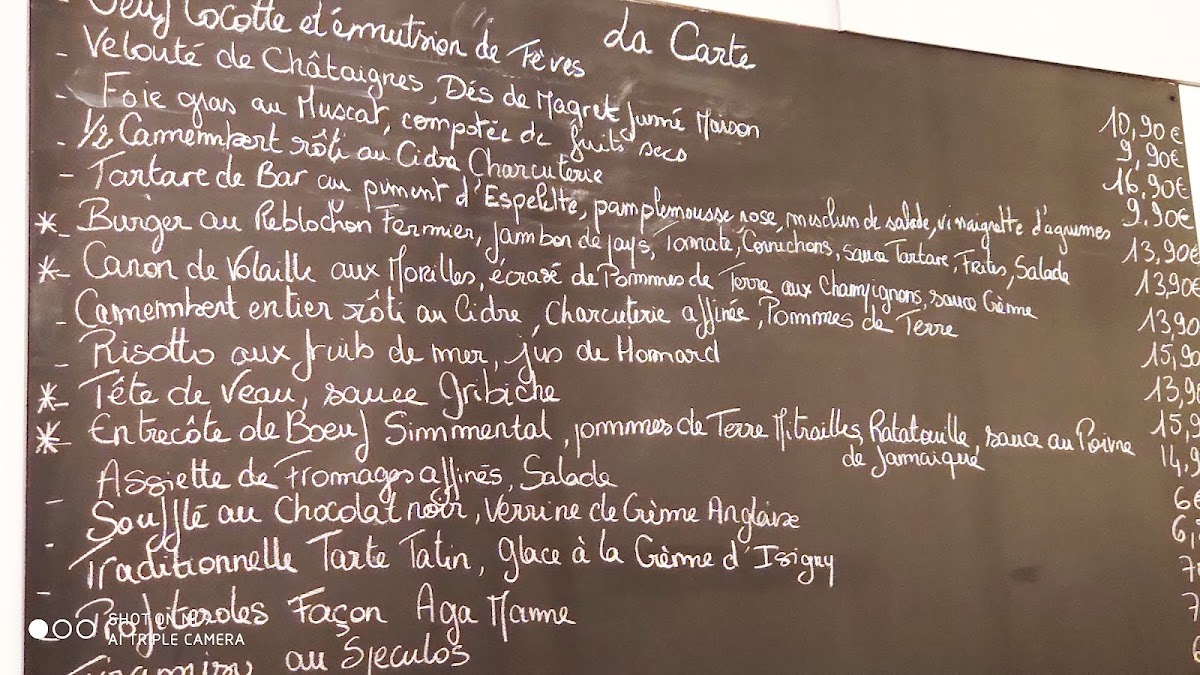 La Carte
Oeuf Cocotte et émulsion de Fèves
- Velouté de Châtaignes, Dés de Magret fumé Maison 10,90€
- Foie gras au Muscat, compotée de fruits secs 9,90€
- 1/2 Camembert rôti au Cidre, Charcuterie 16,90€
- Tartare de Bar au piment d'Espelette, pamplemousse rose, musclun de salade, vinaigrette d'agrumes 9.90€
*- Burger au Reblochon Fermier, Jambon de pays, Tomate, Cornichons, sauce Tartare, Frites, Salade 13,90€
*- Canon de Volaille aux Morilles, écrasé de Pommes de Terre aux Champignons, sauce Crème 13,90€
- Camembert entier rôti au Cidre, Charcuterie affinée, Pommes de Terre 13,90
- Risotto aux fruits de mer, jus de Homard 15,90
*- Tête de Veau, sauce Gribiche 13,90
*- Entrecôte de Boeuf Simmental, pommes de Terre Mitrailles, Ratatouille, sauce au Poivre 15,9
de Jamaïque
Assiette de Fromages affinés, Salade 14,9
- Soufflé au Chocolat noir, Verrine de Crème Anglaise 6€
- Traditionnelle Tarte Tatin, glace à la Crème d'Isigny 6,
- Profiteroles Façon Aga Manne 7
Tiramisu au Speculos 7
6
SHOT ON MI 9
AI TRIPLE CAMERA